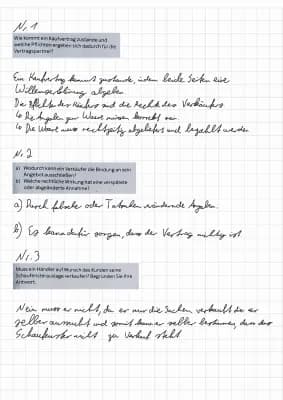 Nr. 1
Wie kommt ein Kaufvertrag zustande und
welche Pflichten ergeben sich dadurch für die
Vertragspartner?
Ein Kaufvertrag kommt zustande, indem beide Seiten eine
Willenserklärung abgeben
Die Pflicht des Käufers sind die Rechte des Verkäufers
↳ Die Angaben zur Ware müssen korrekt sein
↳ Die Ware muss rechtzeitig abgeliefert und bezahlt werden
Nr. 2
a) Wodurch kann ein Verkäufer die Bindung an sein
Angebot ausschließen?
b) Welche rechtliche Wirkung hat eine verspätete
oder abgeänderte Annahme?
a) Durch falsche oder Angaben.
b) Es kann dafür sorgen, dass der Vertrag nichtig ist
Nr. 3
Muss ein Händler auf Wunsch des Kunden seine
Schaufensterauslage verkaufen? Begründen Sie Ihre
Antwort.
Nein muss er nicht, da er nur die Sachen verkauft die er
selber aussucht und somit kann er selber bestimmen, dass das
Schaufenster nicht zum Verkauf steht